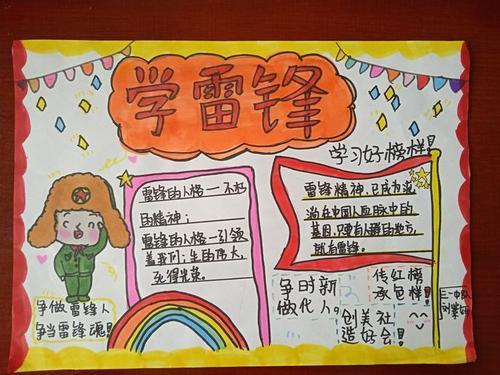 学雷锋
学习好榜样!
雷锋的人格一不朽
的精神;
雷锋的人格一引领
着我们;生的伟大,
死得光荣。
雷锋精神,已成为流
淌在中国人血脉中的
基因,只要有人群的地方,
就有雷锋。
争做雷锋人
争当雷锋魂!
争时新
做代人。
传红榜
承色样!
创美社
造好会!
三一中队